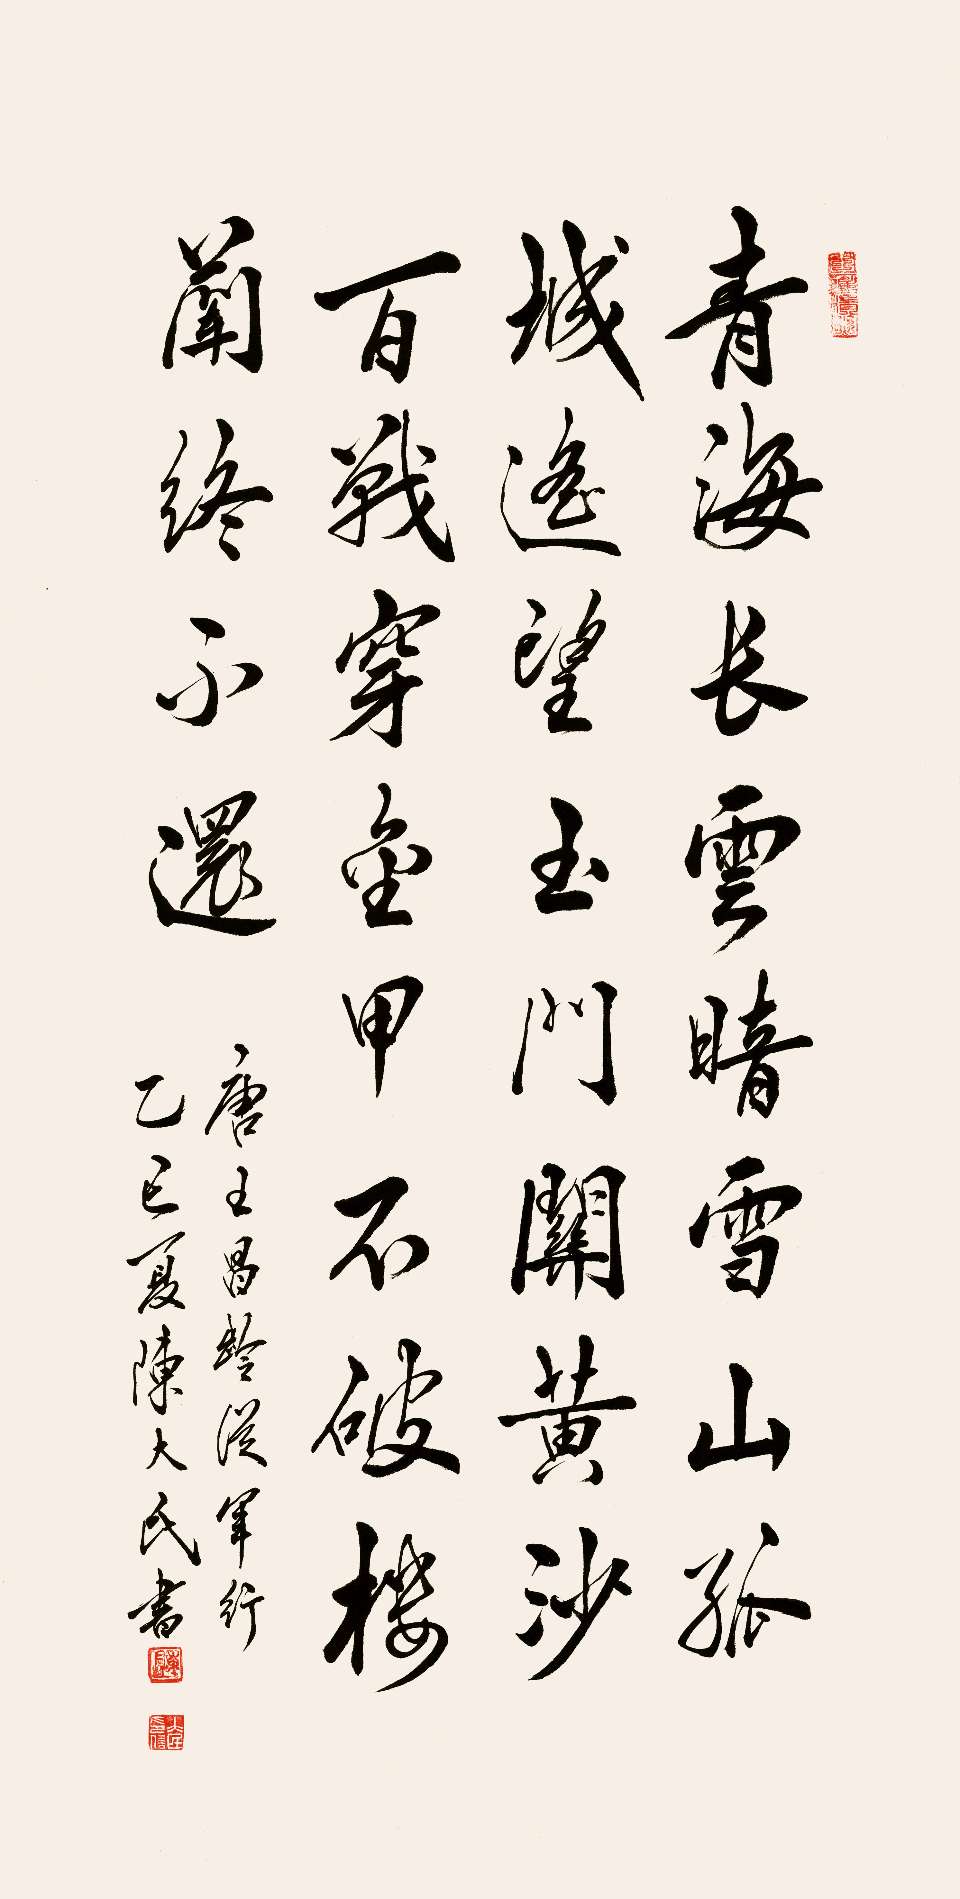 青海长雲暗雪山孤
城遙望玉門關黄沙
百戰穿金甲不破楼
蘭終不還
唐王昌齡從軍行
乙巳夏陳大氏書